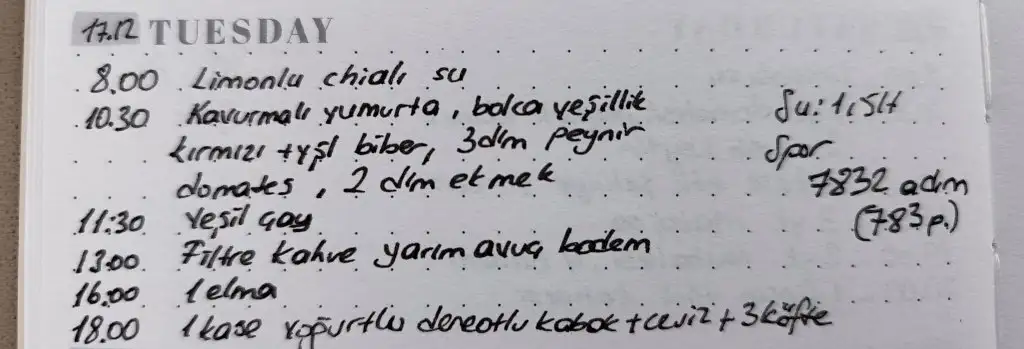 17.12 TUESDAY
8.00 Limonlu chialı su
10.30 Kavurmalı yumurta, bolca yeşillik
kırmızı + yşl biber, 3 dlm peynir
domates, 2 dlm ekmek
11:30 Yeşil çay
13.00 Filtre kahve yarım avuç badem
16.00 1 elma
18.00 1 kase yoğurtlu dereotlu kabak + ceviz + 3 köfte
Su: 1,5 lt
Spor
7832 adım
(783 p.)